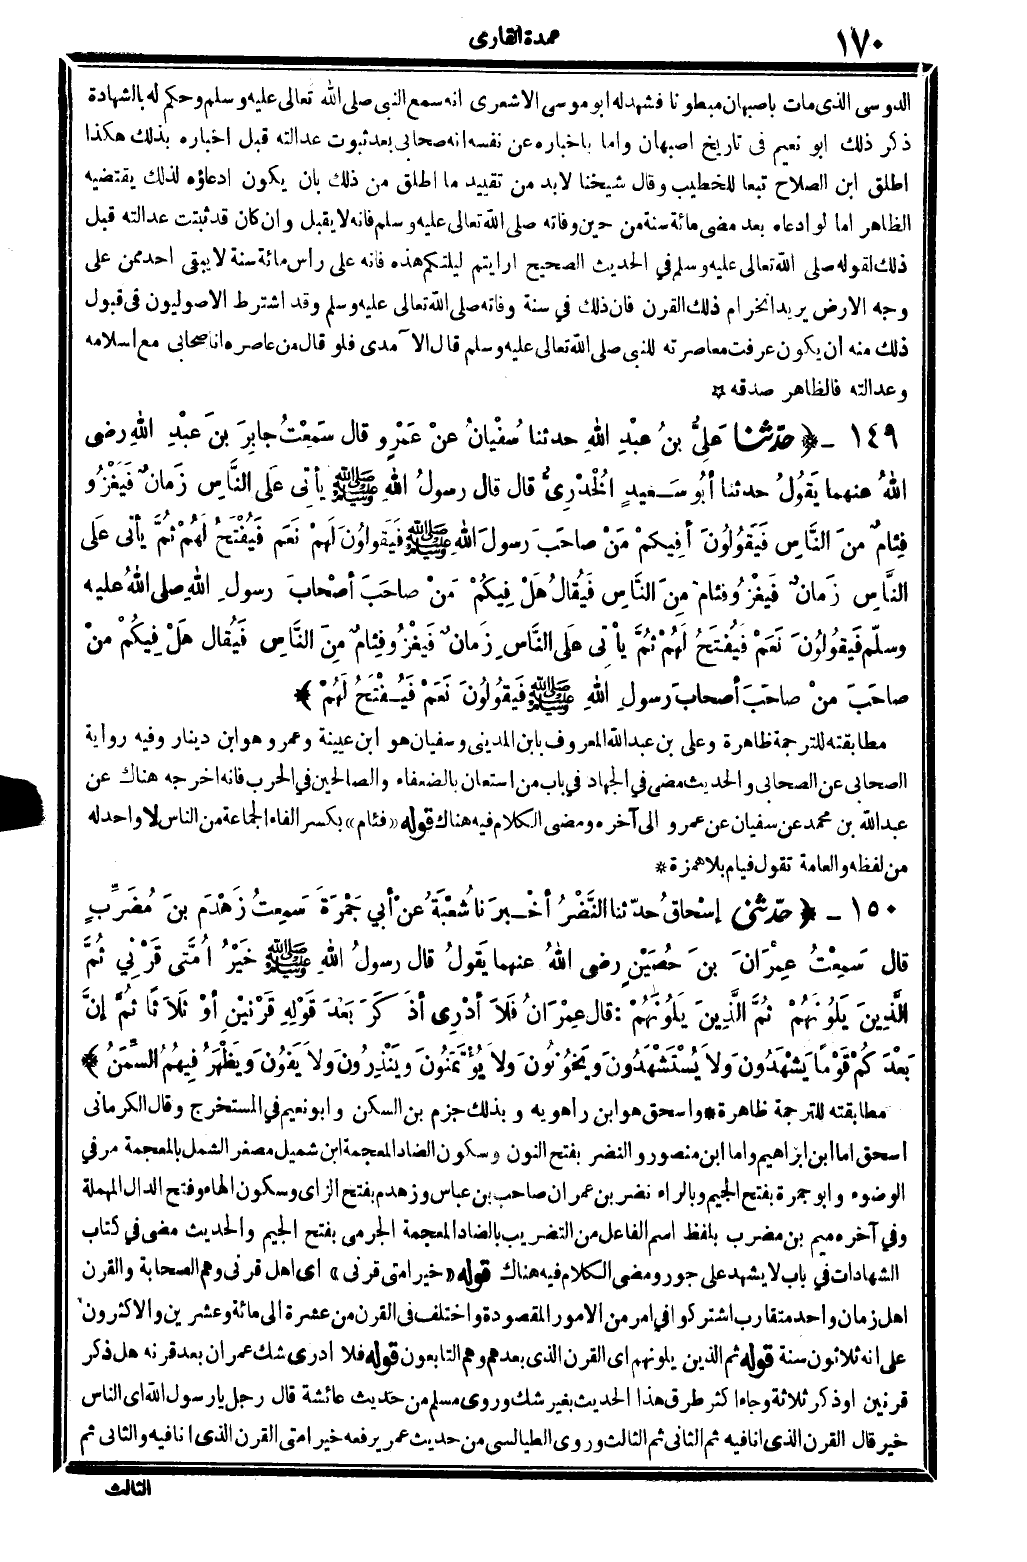 ١٧٠
عمدة القارى
الدوسى الذى مات باصبهان مبطونا فشهد له ابو موسى الاشعرى انه سمع النبى صلى الله تعالى عليه وسلم وحكم له بالشهادة
ذكر ذلك ابو نعيم فى تاريخ اصبهان واما باخباره عن نفسه انه صحابى بعد ثبوت عدالته قبل اخباره بذلك هكذا
اطلق ابن الصلاح تبعا للخطيب وقال شيخنا لابد من تقييد ما اطلق من ذلك بان يكون ادعاؤه لذلك يقتضيه
الظاهر اما لو ادعاه بعد مضى مائة سنة من حين وفاته صلى الله تعالى عليه وسلم فانه لا يقبل وان كان قد ثبتت عدالته قبل
ذلك لقوله صلى الله تعالى عليه وسلم في الحديث الصحيح ارايتم ليلتكم هذه فانه على رأس مائة سنة لا يبقى احد ممن على
وجه الارض يريد انخرام ذلك القرن فان ذلك في سنة وفاته صلى الله تعالى عليه وسلم وقد اشترط الاصوليون فى قبول
ذلك منه أن يكون عرفت معاصرته للنبي صلى الله تعالى عليه وسلم قال الآمدى فلو قال من عاصره انا صحابى مع اسلامه
وعدالته فالظاهر صدقه *
١٤٩ - ﴿ حدّثنا عَلِيُّ بنُ عبْدِ اللهِ حدثنا سُفْيانُ عنْ عَمْرٍو قال سَمِعْتُ جابِرَ بنَ عبْدِ اللهِ رضى
اللهُ عنهما يَقُولُ حدثنا أبُو سَعِيدٍ الْخُدْرِىُّ قال قال رسولُ اللهِ ﷺ يأتى عَلَى النَّاسِ زَمانٌ فَيَغْزُو
فِئامٌ منَ النَّاسِ فَيَقُولُونَ أفِيكمْ مَنْ صاحَبَ رسولَ اللهِ ﷺ فَيَقولُونَ لَهمْ نَعَم فَيُفْتَحُ لَهُمْ ثُمَّ يأتى عَلَى
النَّاسِ زَمانٌ فَيَغْزُو فئام مِنَ النَّاسِ فَيُقالُ هَلْ فِيكُمْ مَنْ صاحَبَ أصْحابَ رسولِ اللهِ صلى اللهُ عليه
وسلّم فَيقُولُونَ نَعَمْ فَيُفْتَحُ لَهُمْ ثُمَّ يأتى عَلَى النَّاسِ زَمانٌ فَيَغْزُو فِئامٌ مِنَ النَّاسِ فَيُقال هَلْ فِيكُمْ مَنْ
صاحَبَ مَنْ صاحَبَ أصحابَ رسولِ اللهِ ﷺ فَيقُولُونَ نَعَمْ فَيُفْتَحُ لَهُمْ ﴾
مطابقته للترجمة ظاهرة وعلى بن عبدالله المعروف بابن المدينى وسفيان هو ابن عيينة وعمرو هو ابن دينار وفيه رواية
الصحابى عن الصحابى والحديث مضى في الجهاد في باب من استعان بالضعفاء والصالحين في الحرب فانه اخرجه هناك عن
عبدالله بن محمد عن سفيان عن عمرو الى آخره ومضى الكلام فيه هناك قوله «فئام» بكسر الفاء الجماعة من الناس لا واحد له
من لفظه والعامة تقول فيام بلا همزة *
١٥٠ - ﴿ حدّثنى إسْحاقُ حدّثنا النَّضْرُ أخْبرَنا شُعْبَةُ عنْ أبي جَمْرَةَ سَمِعتُ زَهْدَمَ بنَ مُضَرِّبٍ
قال سَمِعْتُ عِمْرَانَ بنَ حُصَيْنٍ رضى اللهُ عنهما يَقُولُ قال رسولُ اللهِ ﷺ خَيْرُ أُمَّتى قَرْنِي ثُمَّ
الَّذِينَ يَلُونَهُمْ ثُمَّ الَّذِينَ يَلُونَهُمْ : قال عِمْرَانُ فَلاَ أدْرِى أذَكَرَ بَعْدَ قَوْلِهِ قَرْنَيْنِ أوْ ثَلاَثًا ثُمَّ إنَّ
بَعْدَكُمْ قَوْمًا يَشْهَدُونَ ولاَ يُسْتَشْهَدُونَ ويَخُونُونَ ولاَ يُؤْتَمَنُونَ ويَنْذِرُونَ ولاَ يَفُونَ ويَظْهَرُ فِيهُمُ السِّمَنُ ﴾
مطابقته للترجمة ظاهرة * واسحق هو ابن راهويه وبذلك جزم بن السكن وابو نعيم في المستخرج وقال الكرمانى
اسحق اما ابن ابراهيم واما ابن منصور والنضر بفتح النون وسكون الضاد المعجمة ابن شميل مصغر الشمل بالمعجمة مر في
الوضوء وابو جمرة بفتح الجيم وبالراء نضر بن عمران صاحب بن عباس وزهدم بفتح الزاى وسكون الهاء وفتح الدال المهملة
وفي آخره ميم بن مضرب بلفظ اسم الفاعل من التضريب بالضاد المعجمة الجرمى بفتح الجيم والحديث مضى في كتاب
الشهادات في باب لا يشهد على جور ومضى الكلام فيه هناك قوله «خير امتى قرنى» اى اهل قرنى وهم الصحابة والقرن
اهل زمان واحد متقارب اشتركوا في امر من الامور المقصودة واختلف فى القرن من عشرة الى مائة وعشرين والاكثرون
على انه ثلاثون سنة قوله ثم الذين يلونهم اى القرن الذى بعدهم وهم التابعون قوله فلا ادرى شك عمران بعد قرنه هل ذكر
قرنين او ذكر ثلاثة وجاء اكثر طرق هذا الحديث بغير شك وروى مسلم من حديث عائشة قال رجل يارسول الله اى الناس
خير قال القرن الذى انافيه ثم الثانى ثم الثالث وروى الطيالسى من حديث عمر يرفعه خير امتى القرن الذى انافيه والثانى ثم
الثالث